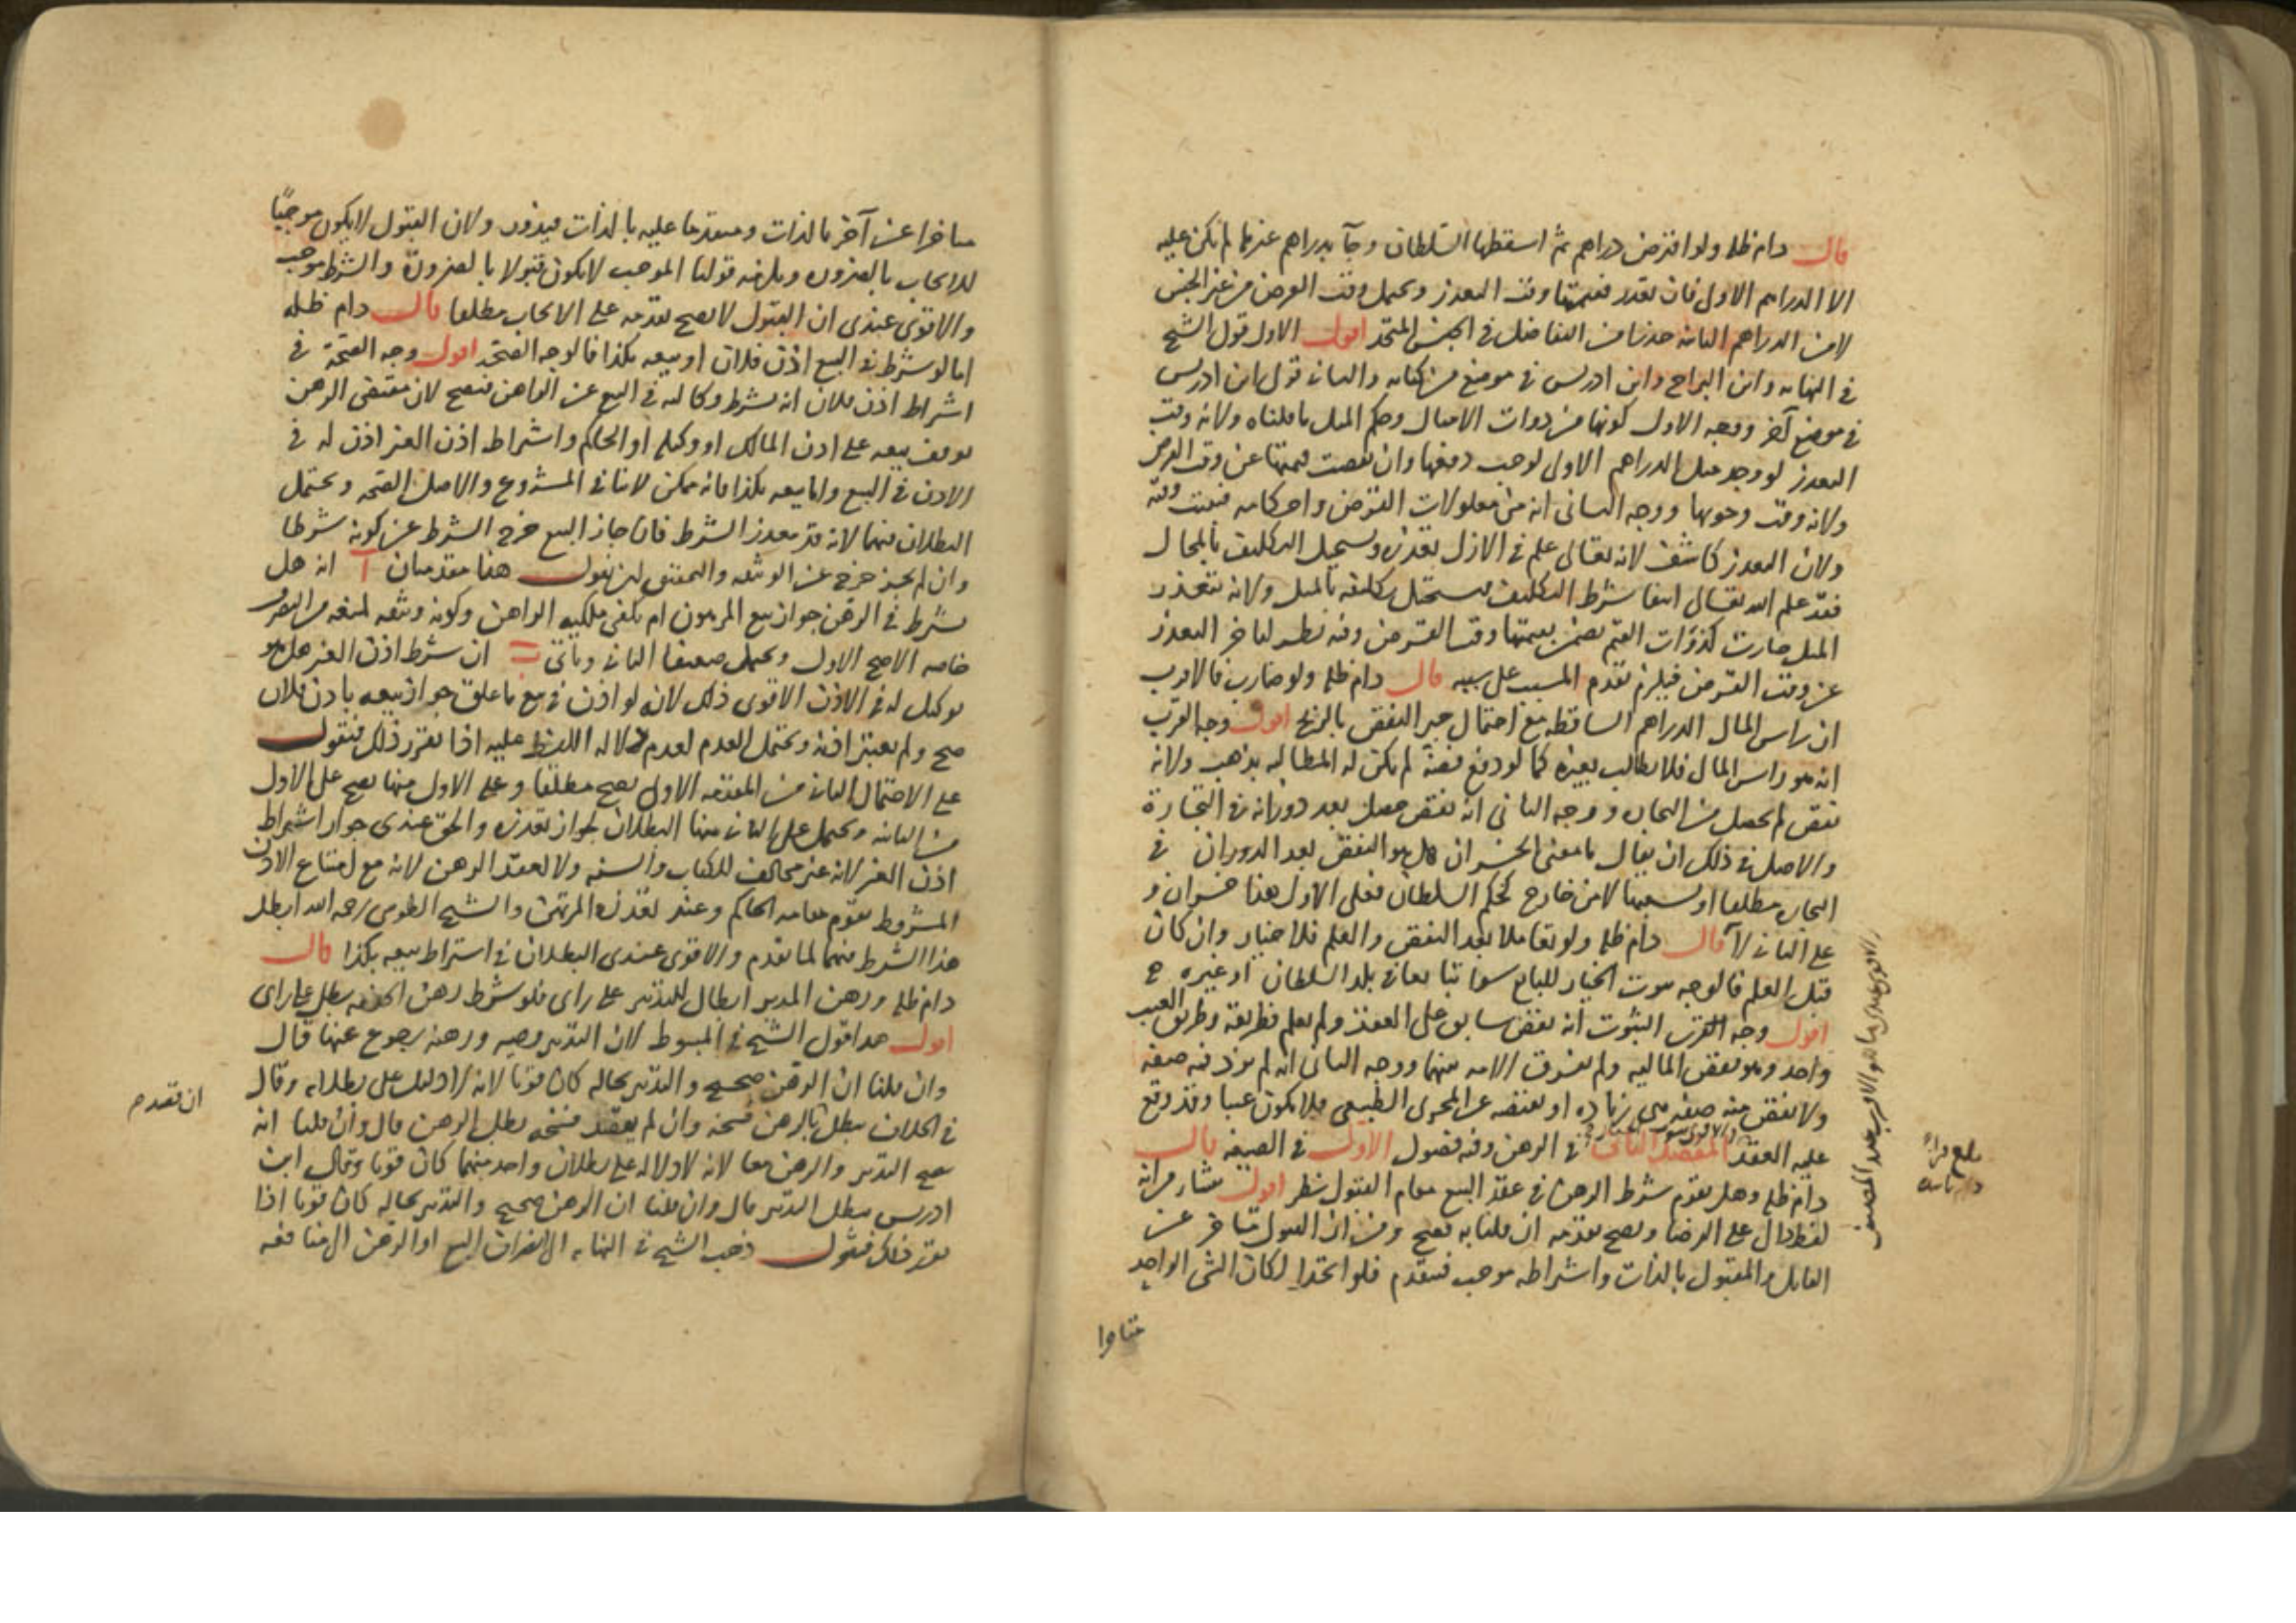 قال دام ظله ولو اقترض دراهم ثم اسقطها السلطان وجآ بدراهم غيرها لم يكن عليه
الا الدراهم الاول فان تعذر فقيمتها وقت التعذر ويحتمل وقت القرض من غير الجنس
لا من الدراهم الثانية حذرا من التفاضل في الجنس المتحد اقول الاول قول الشيخ
في النهاية وابن البراج وابن ادريس في موضع من كتابه والثاني قول ابن ادريس
في موضع آخر ووجه الاول كونها من ذوات الامثال وحكم المثل ما قلناه ولانه وقت
التعذر لو وجد مثل الدراهم الاولى لوجب دفعها وان نقصت قيمتها عن وقت القرض
ولانه وقت وجوبها ووجه الثاني انه من معلولات القرض واحكامه فيثبت وقته
ولان التعذر كاشف لانه تعالى علم في الازل تعذره ويستحيل التكليف بالمحال
فقد علم الله تعالى انتفا شرط التكليف فيستحيل تكليفه بالمثل ولانه بتعذر
المثل صارت كذوات القيم يضمن بقيمتها وقت القرض وفيه نظر لتاخر التعذر
عن وقت القرض فيلزم تقدم المسبب على سببه قال دام ظله ولو ضارب فالاقرب
ان راس المال الدراهم الساقطه مع احتمال جبر النقص بالربح اقول وجه القرب
انه هو راس المال فلا يطالب بغيره كما لو دفع فضة لم يكن له المطالبه بذهب ولانه
نقص لم يحصل من التجارة ووجه الثاني انه نقص حصل بعد دورانه في التجارة
والاصل في ذلك ان يقال ما معنى الخسران هل هو النقص بعد الدوران في
التجارة مطلقا او بسببها لا من خارج كحكم السلطان فعلى الاول هذا خسران و
على الثاني لا قال دام ظله ولو تعاملا بعد النقص والعلم فلا خيار وان كان
قبل العلم فالوجه ثبوت الخيار للبايع سوا تبايعا في بلد السلطان او غيره
اقول وجه القرب الثبوت انه نقص سابق على العقد ولم يعلم فطريقه وطريق العيب
واحد وهو نقص الماليه ولم تفرق الامه بينهما ووجه الثاني انه لم يزد فيه صفه
ولا نقص منه صفه هي زياده او نقيصه عن المجرى الطبيعي فلا يكون عيبا وقد وقع
عليه العقد المقصد الثاني في الرهن وفيه فصول الاول في الصيغه قال
دام ظله وهل يقوم شرط الرهن في عقد البيع مقام القبول نظر اقول ينشا من انه
لفظ دال على الرضا ويصح تقدمه ان قلنا به فصح ومن ان القبول متاخر عن
القابل والمقبول بالذات واشتراطه موجب فيتقدم فلو اتحدا لكان الشي الواحد
والاقوى عندي ما هو الاقرب عند المصنف
بلغ قراءة
دام تاييده
متاخرا
متاخرا عن آخر بالذات ومتقدما عليه بالذات فيدور ولان القبول لا يكون موجبًا
للايجاب بالضرورة ويلزمه قولنا الموجب لا يكون قبولا بالضرورة والشرط موجب
والاقوى عندي ان القبول لا يصح تقدمه على الايجاب مطلقا قال دام ظله
اما لو شرط في البيع اذن فلان او بيعه بكذا فالوجه الصحه اقول وجه الصحة في
اشتراط اذن فلان انه يشترط وكالته في البيع عن الراهن فيصح لان مقتضى الرهن
توقف بيعه على اذن المالك او وكيله او الحاكم واشتراط اذن الغير اذن له في
الاذن في البيع واما بيعه بكذا فانه ممكن لا ينافي المشروع والاصل الصحه ويحتمل
البطلان فيهما لانه قد يتعذر الشرط فان جاز البيع خرج الشرط عن كونه شرطا
وان لم يجز خرج عن الوثيقه والتحقيق ان نقول هنا مقدمتان آ انه هل
يشترط في الرهن جواز بيع المرهون ام يكفي ملكيه الراهن وكونه وثيقه لمنعه من التصرف
خاصه الاصح الاول ويحتمل ضعيفا الثاني وياتي ب ان شرط اذن الغير هل هو
توكيل له في الاذن الاقوى ذلك لانه لو اذن في بيع ما علق جواز بيعه باذن فلان
صح ولم يعتبر اذنه ويحتمل العدم لعدم دلاله اللفظ عليه اذا تقرر ذلك فنقول
على الاحتمال الثاني من المقدمه الاولى يصح مطلقا وعلى الاول منها يصح على الاول
من الثانيه ويحتمل على الثاني منها البطلان لجواز تعذره والحق عندي جواز اشتراط
اذن الغير لانه غير مخالف للكتاب والسنه ولا لعقد الرهن لانه مع امتناع الاذن
المشروط يقوم مقامه الحاكم وعند تعذره المرتهن والشيخ الطوسي رحمه الله ابطل
هذا الشرط فيهما لما تقدم والاقوى عندي البطلان في اشتراط بيعه بكذا قال
دام ظله ورهن المدبر ابطال للتدبير على راى فلو شرط رهن الخدمه بطل على راى
اقول هذا قول الشيخ في المبسوط لان التدبير وصيه ورهنه رجوع عنها قال
وان قلنا ان الرهن صحيح والتدبير بحاله كان قويا لانه لا دليل على بطلانه وقال
في الخلاف يبطل بالرهن وان لم يقصد فسخه بطل الرهن قال وان قلنا انه
يصح التدبير والرهن معا لانه لا دلاله على بطلان واحد منهما كان قويا وقال ابن
ادريس يبطل التدبير قال وان قلنا ان الرهن صحيح والتدبير بحاله كان قويا اذا
تقرر ذلك فنقول ذهب الشيخ في النهايه الى انصراف البيع او الرهن الى منافعه
ان تقدم